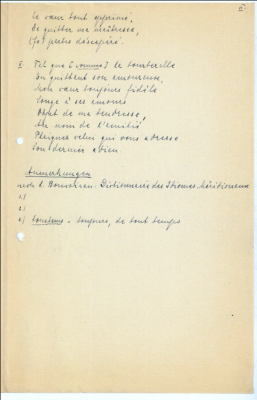 II
Le cœur tout opprimé,
De quitter ma maîtresse,
(Je) pertre désespéré.
5. Tel que [comme] la tourterelle
En quittant son amoureuse,
Mon cœur toujours fidèle
Songe à ses amours
Objet de ma tendresse,
Au nom de l'amitié!
Plaignez celui qui vous adresse
Son dernier adieu.
Anmerkungen
nach t. Dictionnaire des Idiomes Méridionaux
1)
2)
3) toustems - toujours, de tout temps